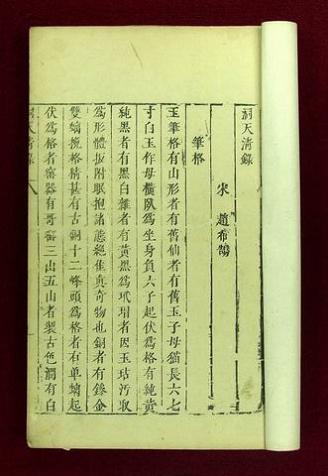 洞天清錄
宋 趙希鵠
筆格
玉筆格有山形者有舊仙者有舊玉子母猫長六七
寸白玉作母橫臥爲坐身負六子起伏爲格有純黃
純黑者有黑白雜者有黃黑爲玳瑁者因玉玷汚取
爲形體扳附眠抱諸態絕佳真奇物也銅者有鏒金
雙螭挽格精甚有古銅十二峰頭爲格者有單螭起
伏爲格者窑器有哥窑三山五山者製古色潤有白
洞天清錄